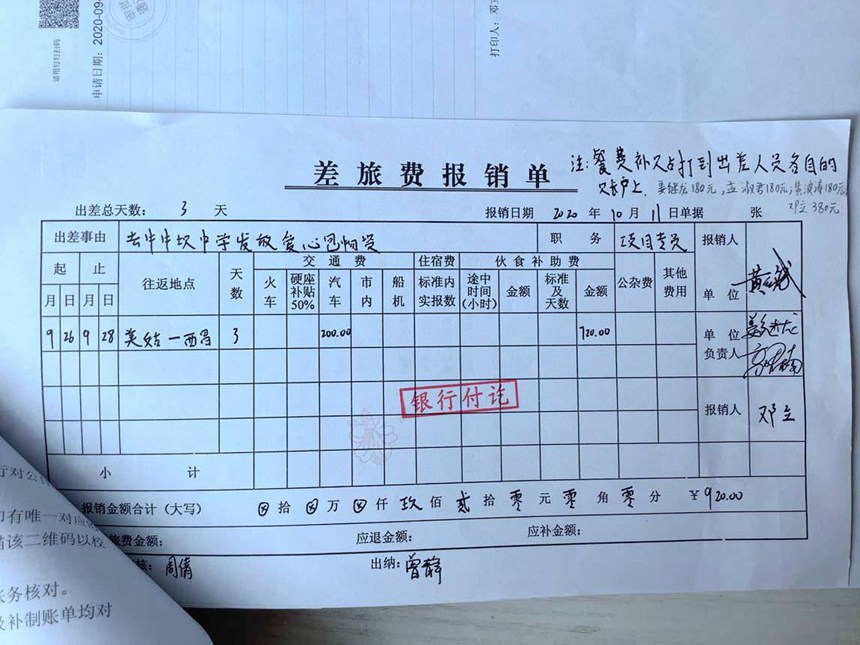 申请日期：2020-09
打印人：邓
差旅费报销单
注：餐费补又占打到出差人员各自的
账户上.
180元
180元
180元
邓立380元
出差总天数： 3 天
报销日期 2020 年 10 月 11 日 单据 张
出差事由 去牛牛坝中学发放爱心包物资 职务 项目专员 报销人
起 止 往返地点 天数 交通费 住宿费 伙食补助费 公杂费 其他费用
月 日 月 日 火车 硬座补贴50% 汽车 市内 船机 标准内实报数 途中时间(小时) 金额 标准及天数 金额 单位
9 26 9 28 美姑—西昌 3 200.00 720.00 单位负责人
银行付讫
报销人 邓立
小计
报销金额合计（大写） ⊗ 拾 ⊗ 万 ⊗ 仟 玖 佰 贰 拾 零 元 零 角 零 分 ¥920.00
旅费金额： 应退金额： 应补金额：
核：周倩 出纳：曾静
行对公
有唯一对应
描该二维码以校
账务核对。
及补制账单均对